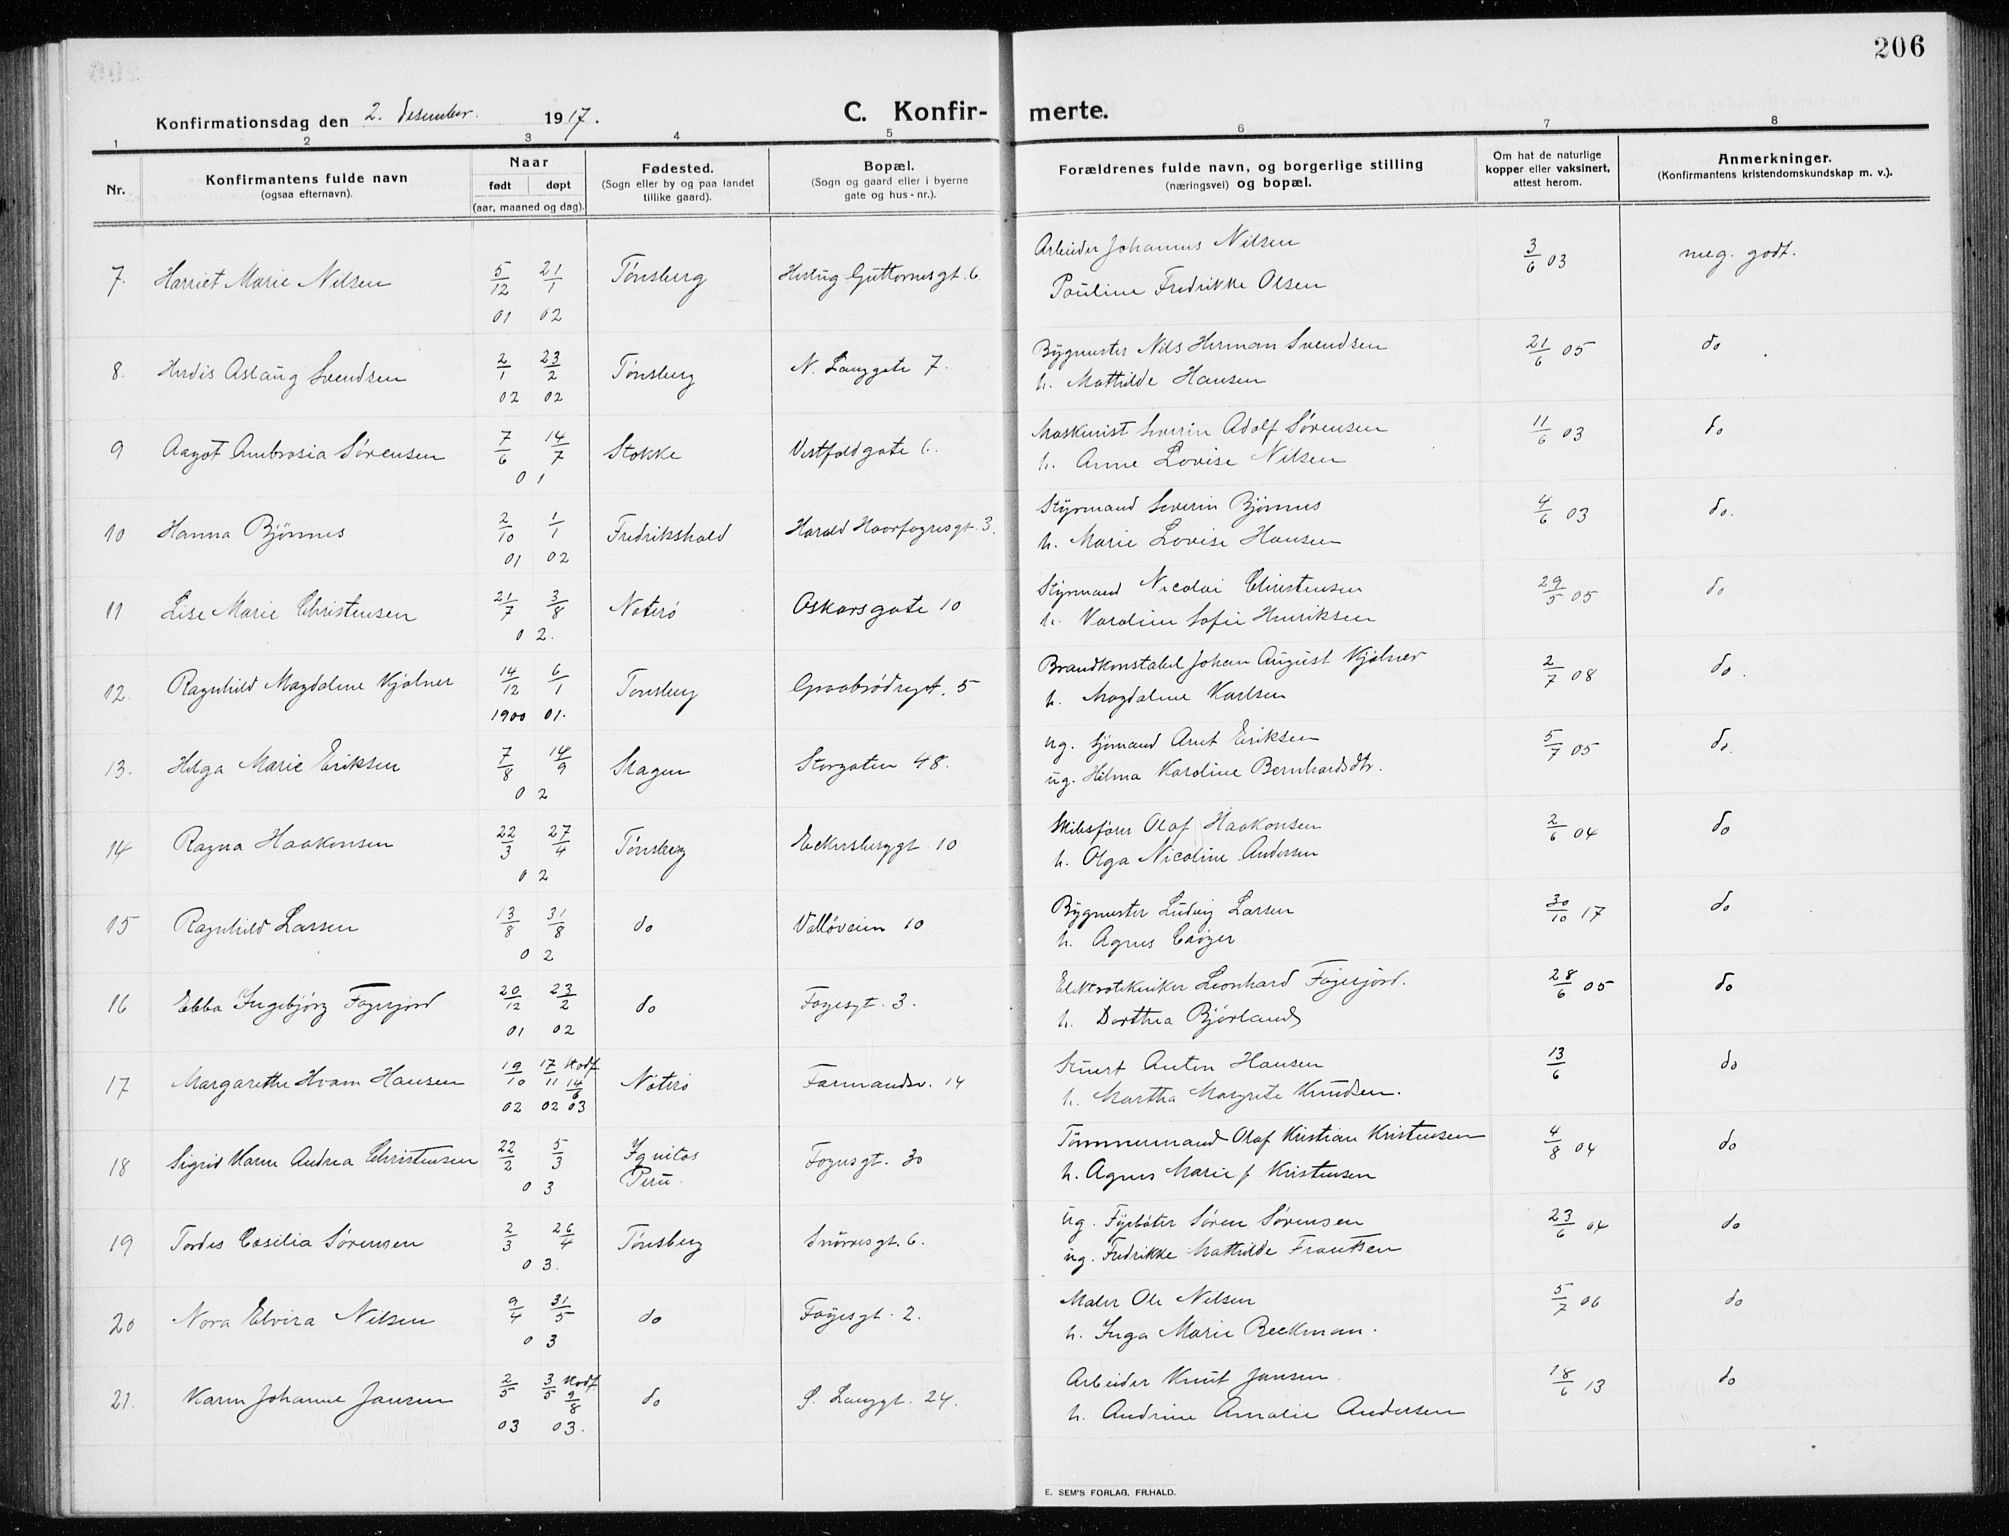 206
Konfirmationsdag den 2. desember. 1917.
C. Konfirmerte.
1 2 3 4 5 6 7 8
Nr.
Konfirmantens fulde navn
(ogsaa efternavn).
Naar
født døpt
(aar, maaned og dag).
Fødested.
(Sogn eller by og paa landet
tillike gaard).
Bopæl.
(Sogn og gaard eller i byerne
gate og hus-nr.).
Forældrenes fulde navn, og borgerlige stilling
(næringsvei) og bopæl.
Om hat de naturlige
kopper eller vaksinert,
attest herom.
Anmerkninger.
(Konfirmantens kristendomskundskap m. v.).
7. Harriet Marie Nilsen 5/12 01 21/1 02 Tønsberg Hertug Guttormsgt. 6 Arbeider Johannes Nilsen 3/6 03 meg. godt.
Pauline Fredrikke Olsen
8. Herdis Aslaug Svendsen 2/1 02 23/2 02 Tønsberg N. Langgate 7. Bygmester Nils Herman Svendsen 21/6 05 do
h. Mathilde Hansen
9 Aagot Ambrosia Sørensen 7/6 14/7 01 Stokke Vestfoldgate 6. Maskinist Severin Adolf Sørensen 11/6 03 do
h. Anne Lovise Nilsen
10 Hanna Bjönnes 2/10 01 1/1 02 Fredrikshald Harald Haarfagresgt. 3. Styrmand Severin Bjönnes 4/6 03 do.
h. Marie Lovise Hansen
11 Lise Marie Christensen 21/7 3/8 02. Nøterø Oskarsgate 10 Styrmand Nicolai Christensen 29/5 05 do
h. Karoline Sofie Henriksen
12. Ragnhild Magdalene Kjølner 14/12 1900 6/1 01. Tønsberg Graabrødregt. 5 Brandkonstabel Johan August Kjølner 2/7 08 do.
h. Magdalene Karlsen
13. Helga Marie Eriksen 7/8 14/9 02 Skagen Storgaten 48. ug. sjømand Arnt Eriksen 5/7 05 do.
ug. Hilma Karoline Bernhardsdtr.
14 Ragna Haakonsen 22/3 27/4 02 Tønsberg Eckersbergt. 10 Skibsfører Olaf Haakonsen 2/6 04 do
h. Olga Nicoline Andersen
15 Ragnhild Larsen 13/8 31/8 02 do Valløveien 10 Bygmester Ludvig Larsen 30/10 17 do
h. Agnes Crøger
16 Ebba Ingebjørg Fagerjord 20/12 01 23/2 02 do Fayesgt. 3. Elektrotekniker Leonhard Fagerjord. 28/6 05 do
h. Dorthea Bjørland
17 Margarethe Hvam Hansen 19/10 02 17/11 02 stadf 14/6 03 Nøterø Farmandsv. 14 Stuert Anton Hansen 13/6 do
h. Martha Margrete Knudsen.
18 Sigrid Karen Andrea Christensen 22/2 5/3 03 Iquitos Peru. Fayesgt. 30 Tømmermand Olaf Kristian Kristensen 4/8 04 do
h. Agnes Marie f Kristensen
19 Tordis Cæsilia Sørensen 2/3 26/4 03. Tønsberg Snorresgt. 6. ug. Fyrbøter Søren Sørensen 23/6 04 do
ug. Fredrikke Mathilde Frantsen
20 Nora Elvira Nilsen 9/4 31/5 03 do Fayesgt. 2. Maler Ole Nilsen 5/7 06 do
h. Inga Marie Beckman.
21. Karen Johanne Jansen 2/5 03 3/5 stadf 9/8 03. do S. Langgt. 24. Arbeider Knut Jansen. 18/6 13 do
h. Andrine Amalie Andersen
E. SEM'S FORLAG, FR.HALD.